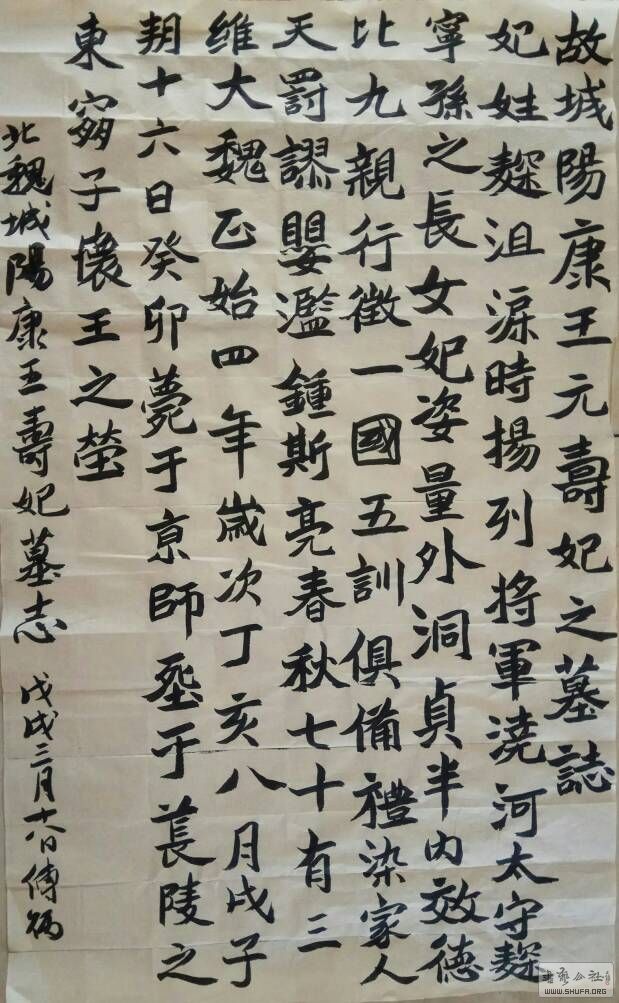 故城陽康王元壽妃之墓誌
妃姓麴沮渠時揚列將軍澆河太守麴
寧孫之長女妃姿量外洞貞半内效德
比九親行徵一國五訓俱備禮染家人
天罰謬嬰濫鍾斯亮春秋七十有三
维大魏正始四年歲次丁亥八月戊子
朔十六日癸卯薨于京師葬于萇陵之
東窮子懷王之塋
北魏城陽康王壽妃墓志 戊戌三月十八日傅
WWW.SHUFA.ORG